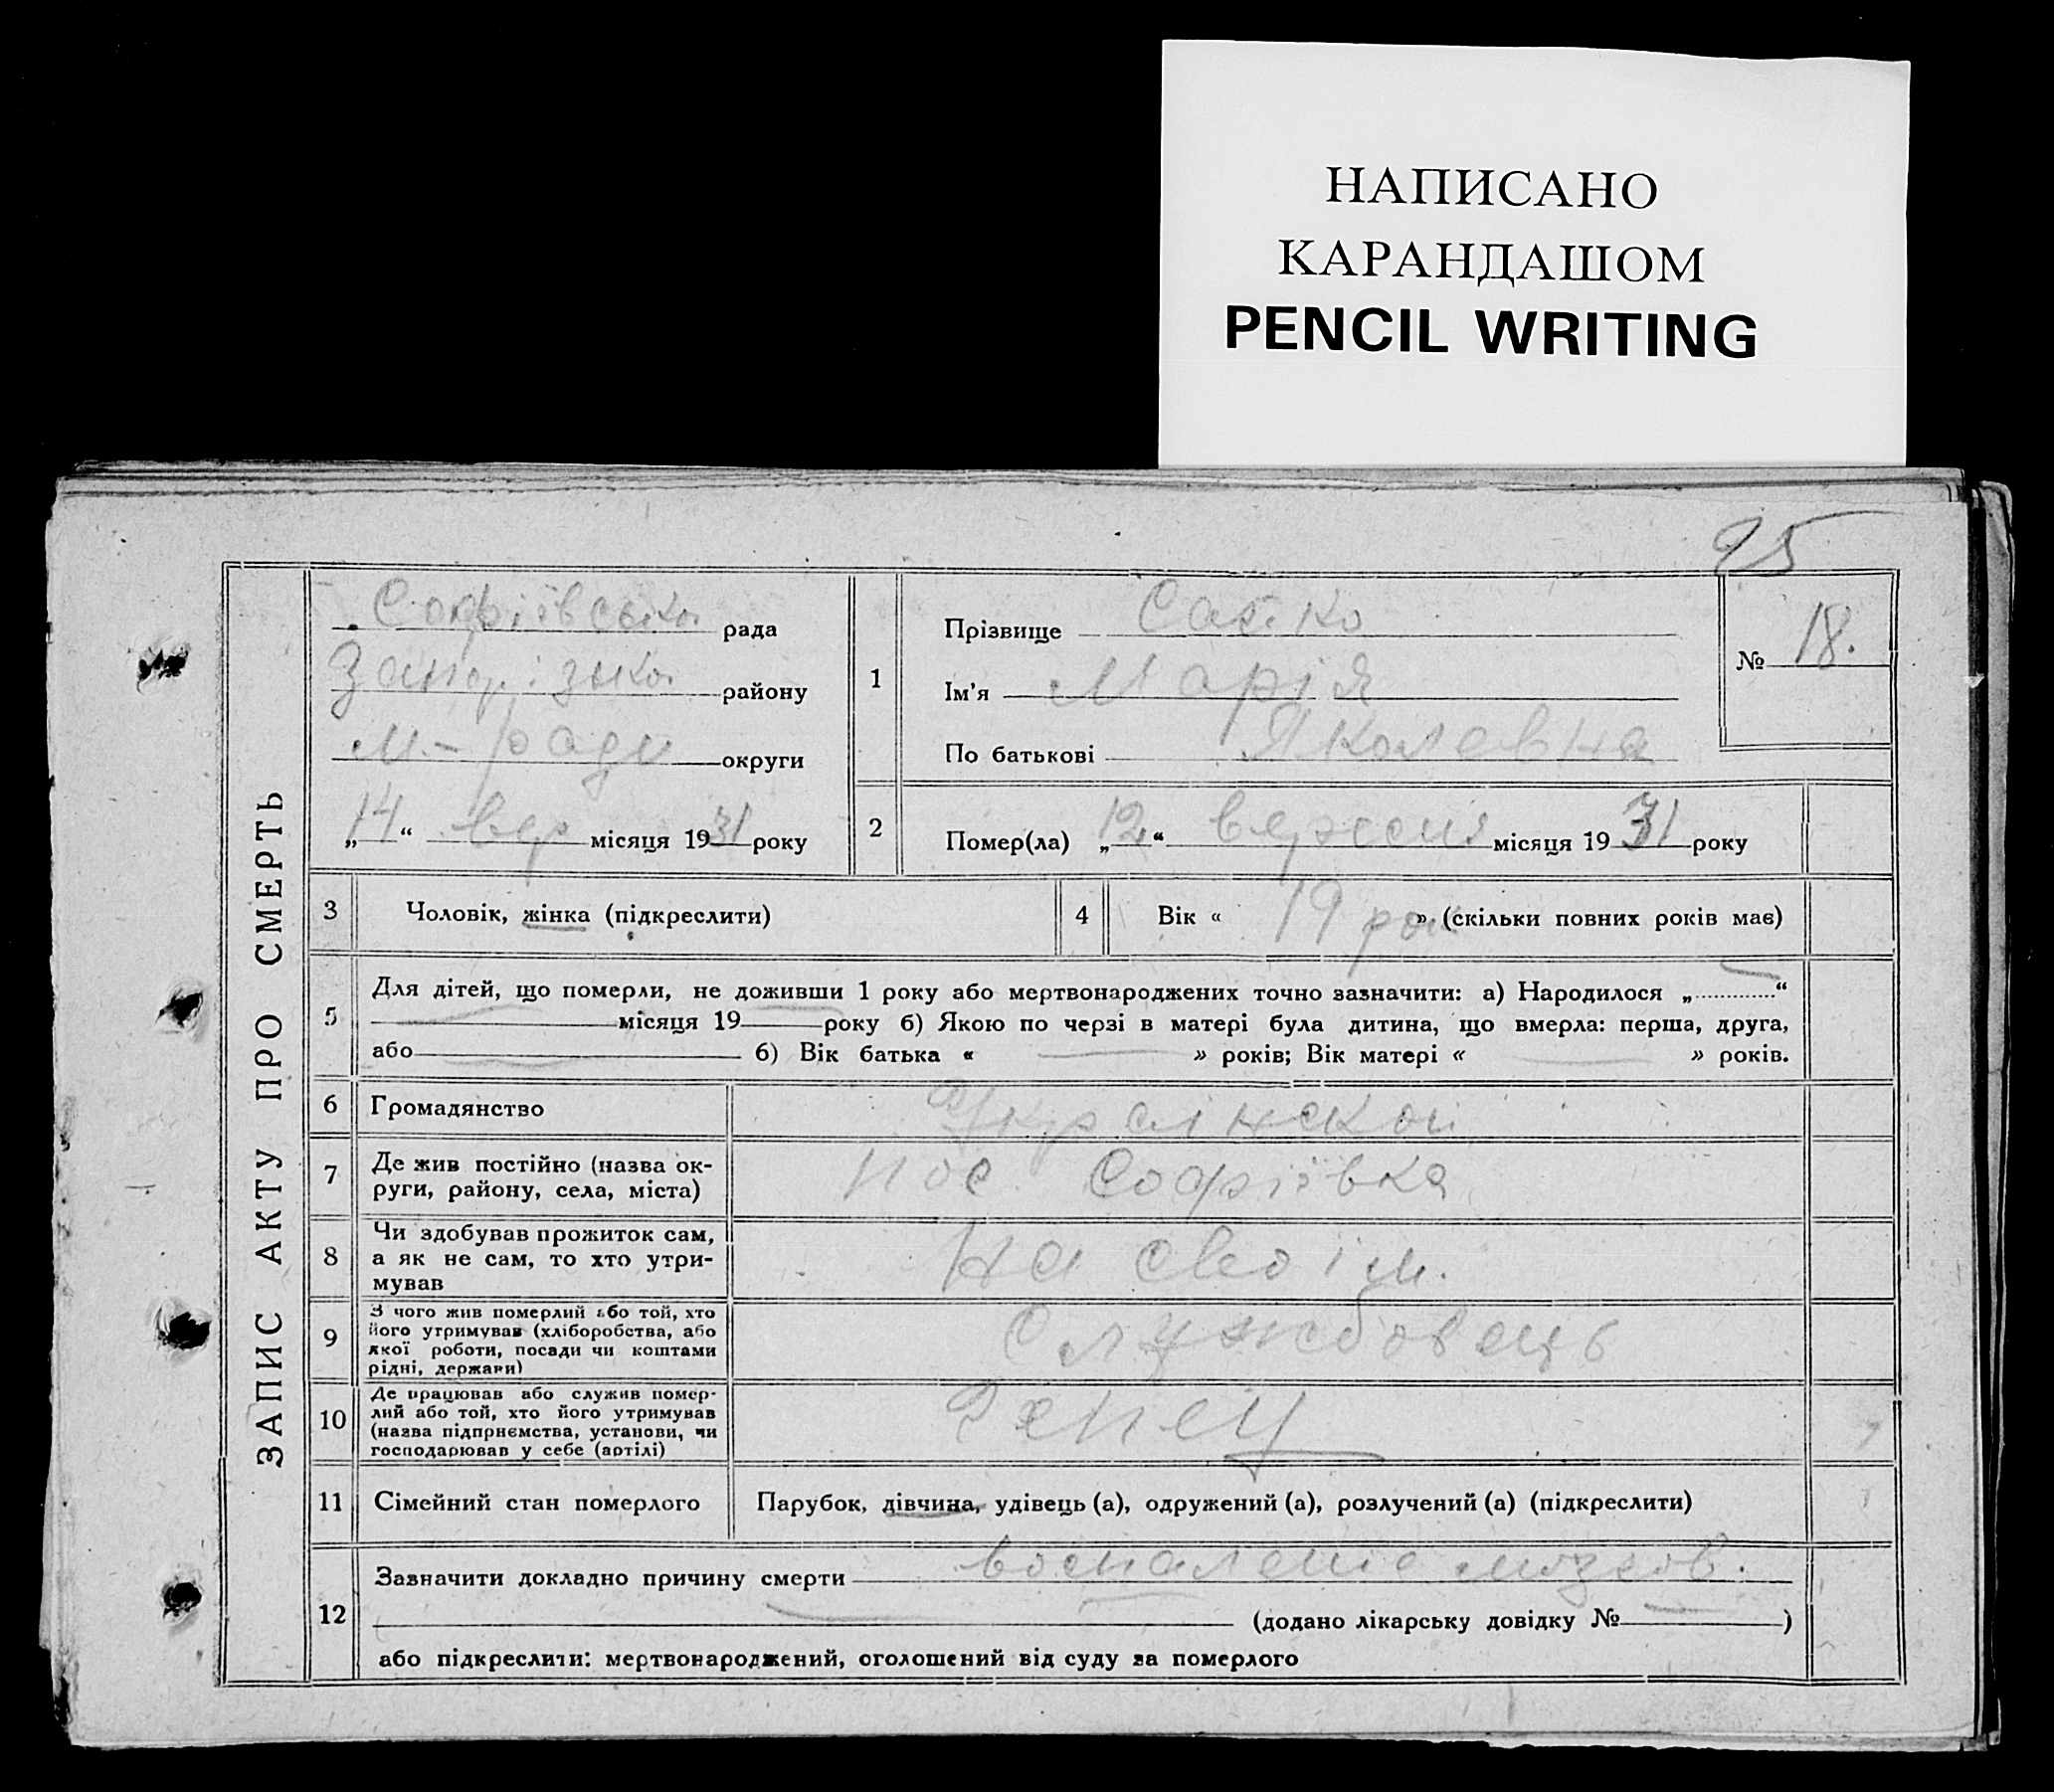 НАПИСАНО
КАРАНДАШОМ
PENCIL WRITING
95
ЗАПИС АКТУ ПРО СМЕРТЬ
Софіївська рада
Запорізька району
м-ради округи
„14“ вер місяця 1931 року
1
Прізвище
Ім'я Марія
По батькові
№ 18.
2
Помер(ла) „12“ вересня місяця 1931 року
3 Чоловік, жінка (підкреслити)
4 Вік « 19 рок » (скільки повних років має)
5 Для дітей, що померли, не доживши 1 року або мертвонароджених точно зазначити: а) Народилося „ “
місяця 19 року б) Якою по черзі в матері була дитина, що вмерла: перша, друга,
або б) Вік батька « » років; Вік матері « » років.
6 Громадянство
7 Де жив постійно (назва ок-
руги, району, села, міста)
пос Софіївка
8 Чи здобував прожиток сам,
а як не сам, то хто утри-
мував
на своім.
9 З чого жив померлий або той, хто
його утримував (хліборобства, або
якої роботи, посади чи коштами
рідні, держави)
Службовець
10 Де працював або служив помер-
лий або той, хто його утримував
(назва підприємства, установи, чи
господарював у себе (артілі)
11 Сімейний стан померлого Парубок, дівчина, удівець (а), одружений (а), розлучений (а) (підкреслити)
12 Зазначити докладно причину смерти воспаленіе мозгов.
(додано лікарську довідку № )
або підкреслити: мертвонароджений, оголошений від суду за померлого